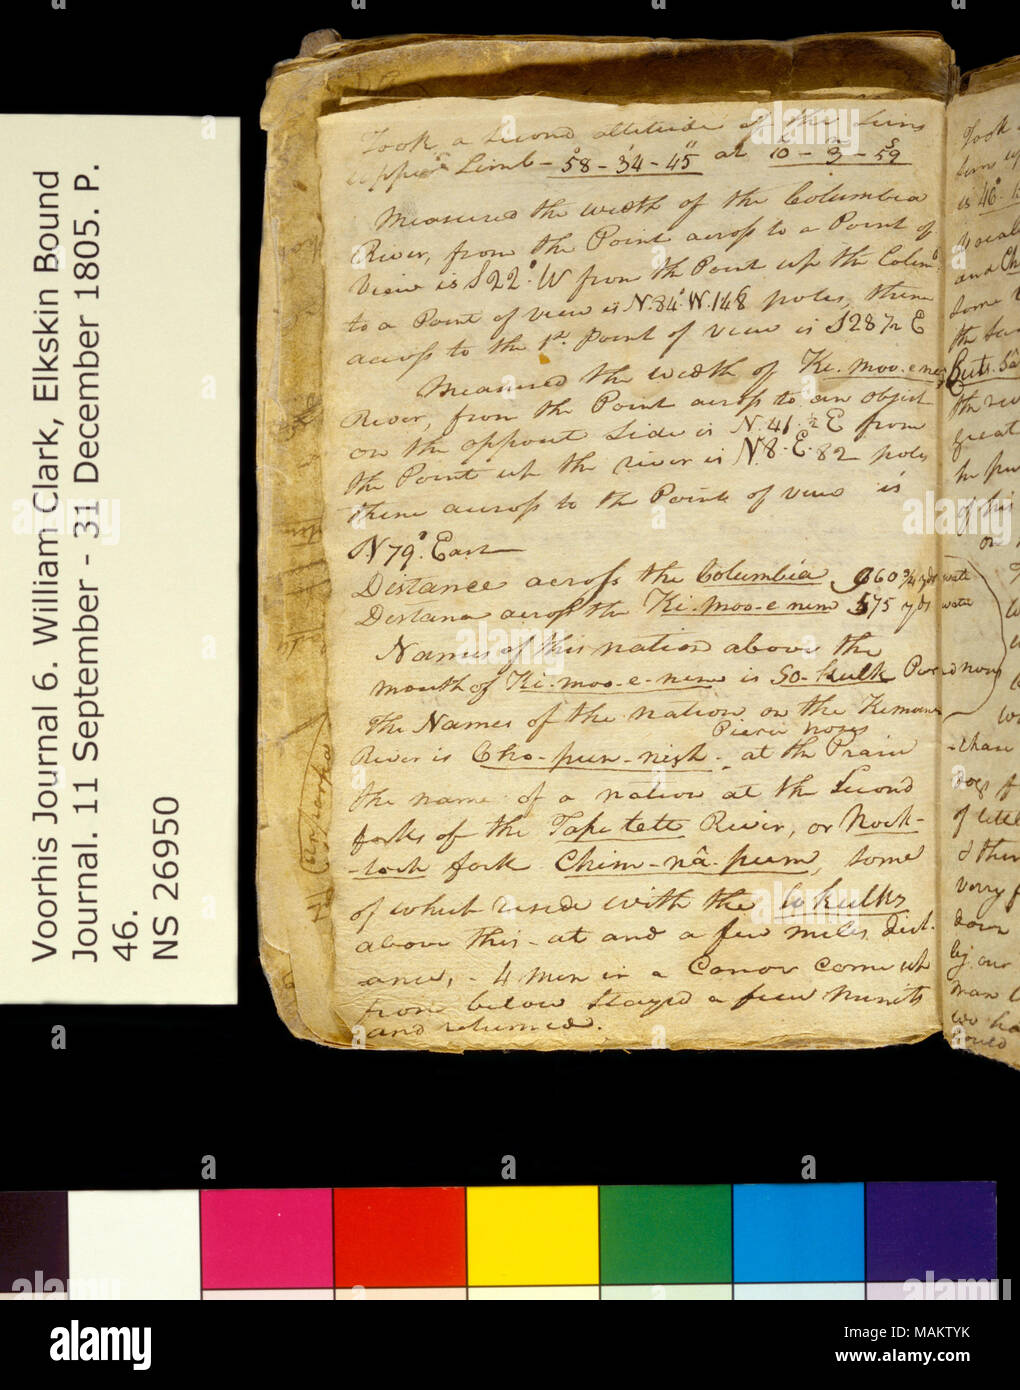 Voorhis Journal 6. William Clark, Elkskin Bound
Journal. 11 September - 31 December 1805. P.
46.
NS 26950
Took a Second altitude of the Suns
upper Limb - 58°-34'-45" at 10h-3m-59s
Measured the width of the Columbia
River, from the Point across to a Point of
View is S 22° W from the Point up the Columa
to a Point of view is N. 84° W. 148 poles, thence
across to the 1st Point of view is S 28 1/2 E
Measured the width of Ki-moo-e-nem
River, from the Point across to an object
on the opposit Side is N. 41. 1/2 E from
the Point up the river is N. 8. E. 82 poles
thence across to the Point of view is
N 79°. East
Distance across the Columbia 960 3/4 yds wate
Distance across the Ki-moo-e nem 575 yds water
Names of this nation above the
mouth of Ki-moo-e-nem is So-kulk Perced noses
The Names of the nation on the Kemooe
Pierce noses
River is Cho-pun-nish. at the Prarie
the name of a nation at the Second
forks of the Tape tett River, or Nock-
-toch fork Chim-nâ-pum, Some
of which reside with the So kulks
above this - at and a few miles dist-
ance, - 4 men in a Canoe come up
from below Stayed a few minits
and returned.
alamy
Image ID: MAKTYK
www.alamy.com